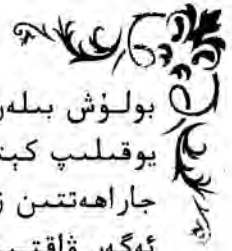 بولۇش بىلەن
يوقىلىپ كېت
جاراھەتتىن ز